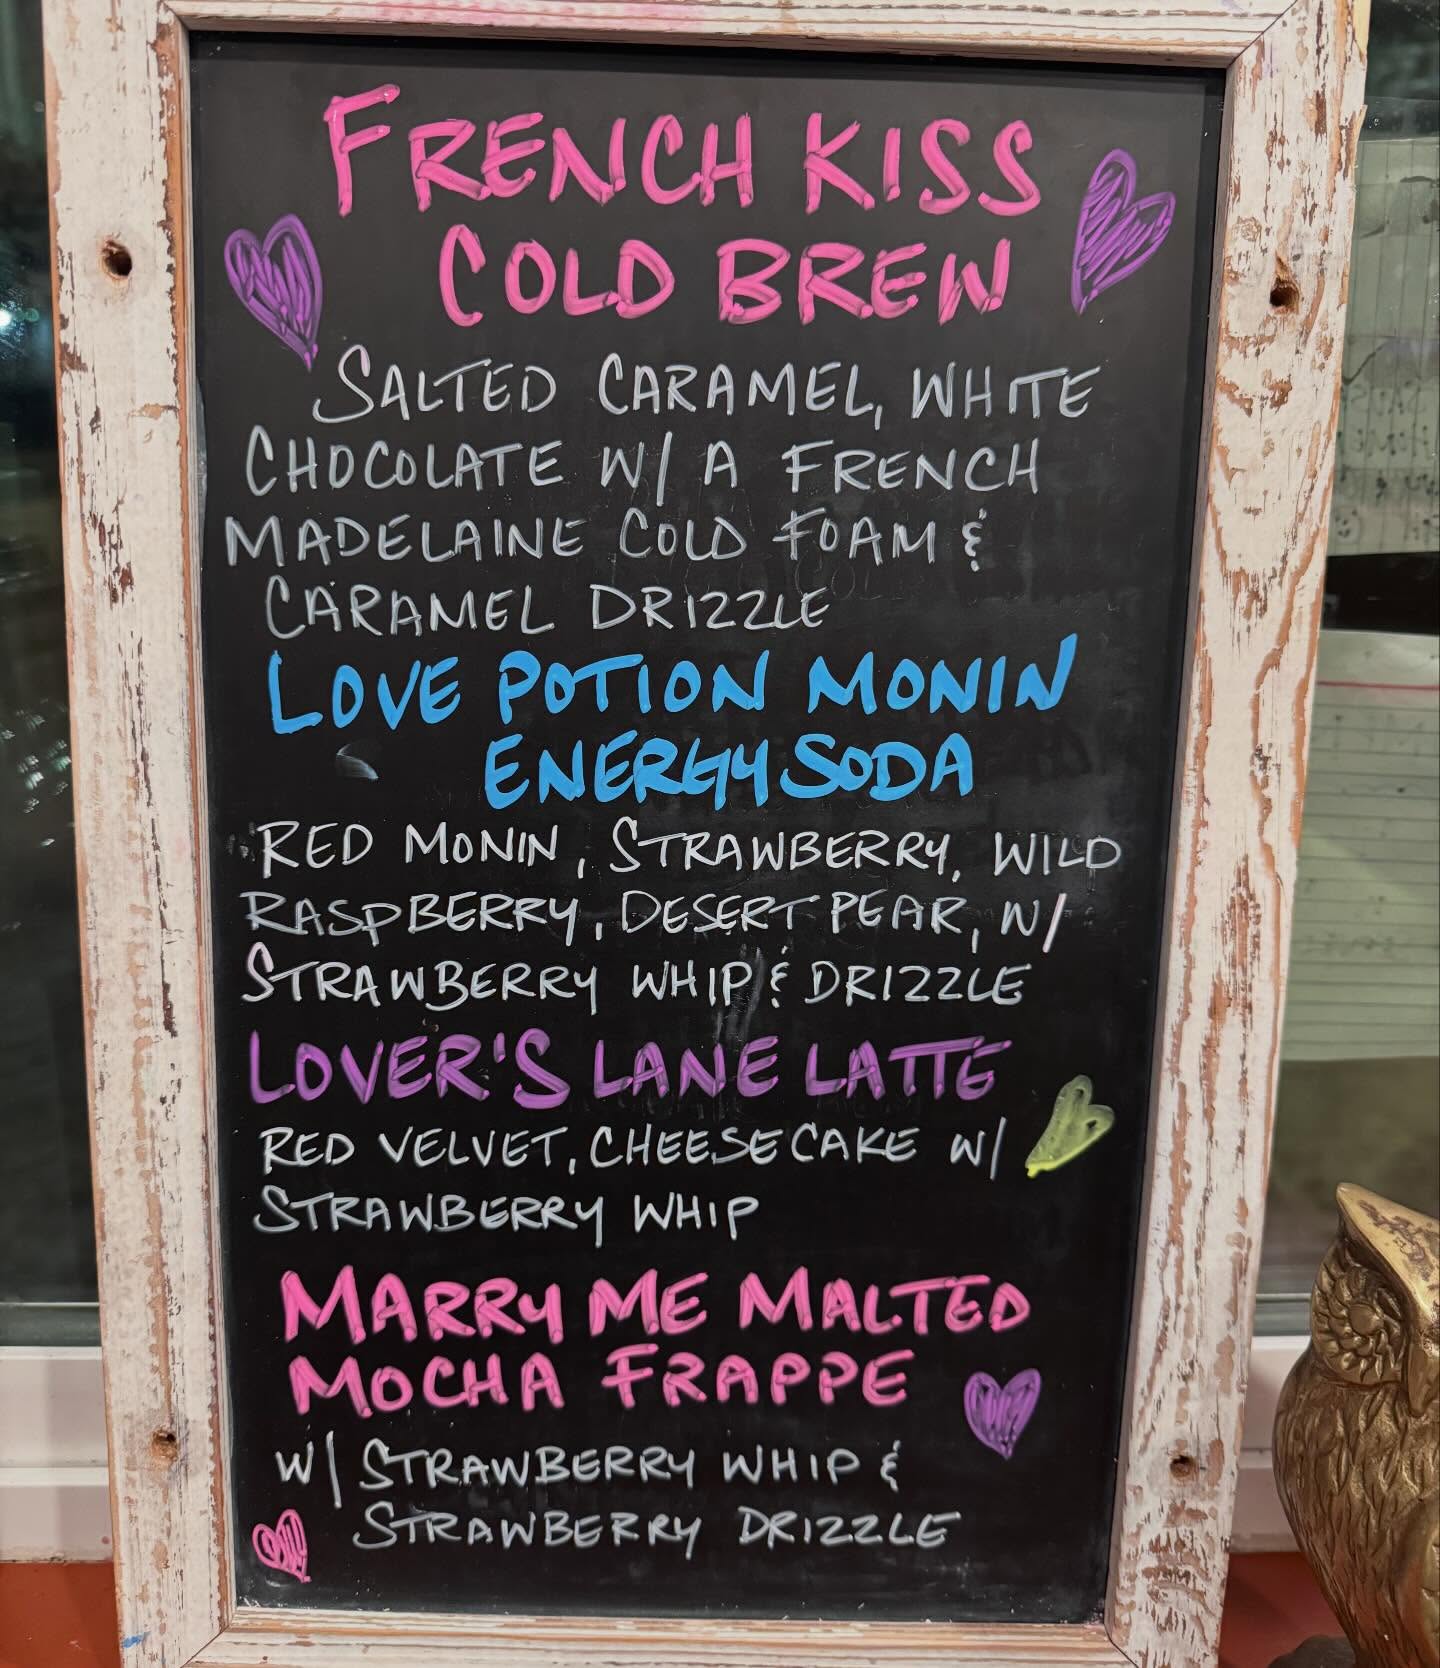 FRENCH KISS
COLD BREW
SALTED CARAMEL, WHITE
CHOCOLATE W/ A FRENCH
MADELAINE COLD FOAM &
CARAMEL DRIZZLE
LOVE POTION MONIN
ENERGY SODA
RED MONIN, STRAWBERRY, WILD
RASPBERRY, DESERT PEAR, W/
STRAWBERRY WHIP & DRIZZLE
LOVER'S LANE LATTE
RED VELVET, CHEESECAKE W/
STRAWBERRY WHIP
MARRY ME MALTED
MOCHA FRAPPE
W/ STRAWBERRY WHIP &
STRAWBERRY DRIZZLE